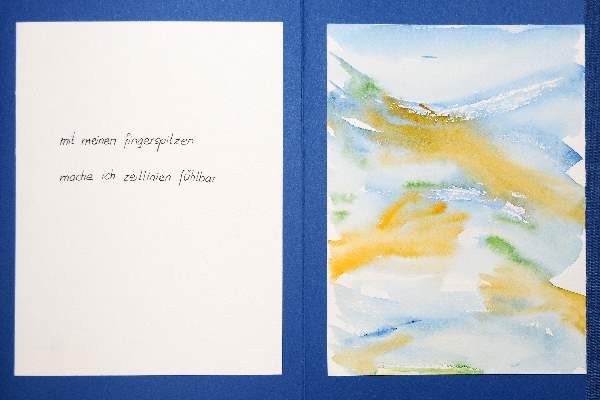 mit meinen fingerspitzen
mache ich zeitlinien fühlbar